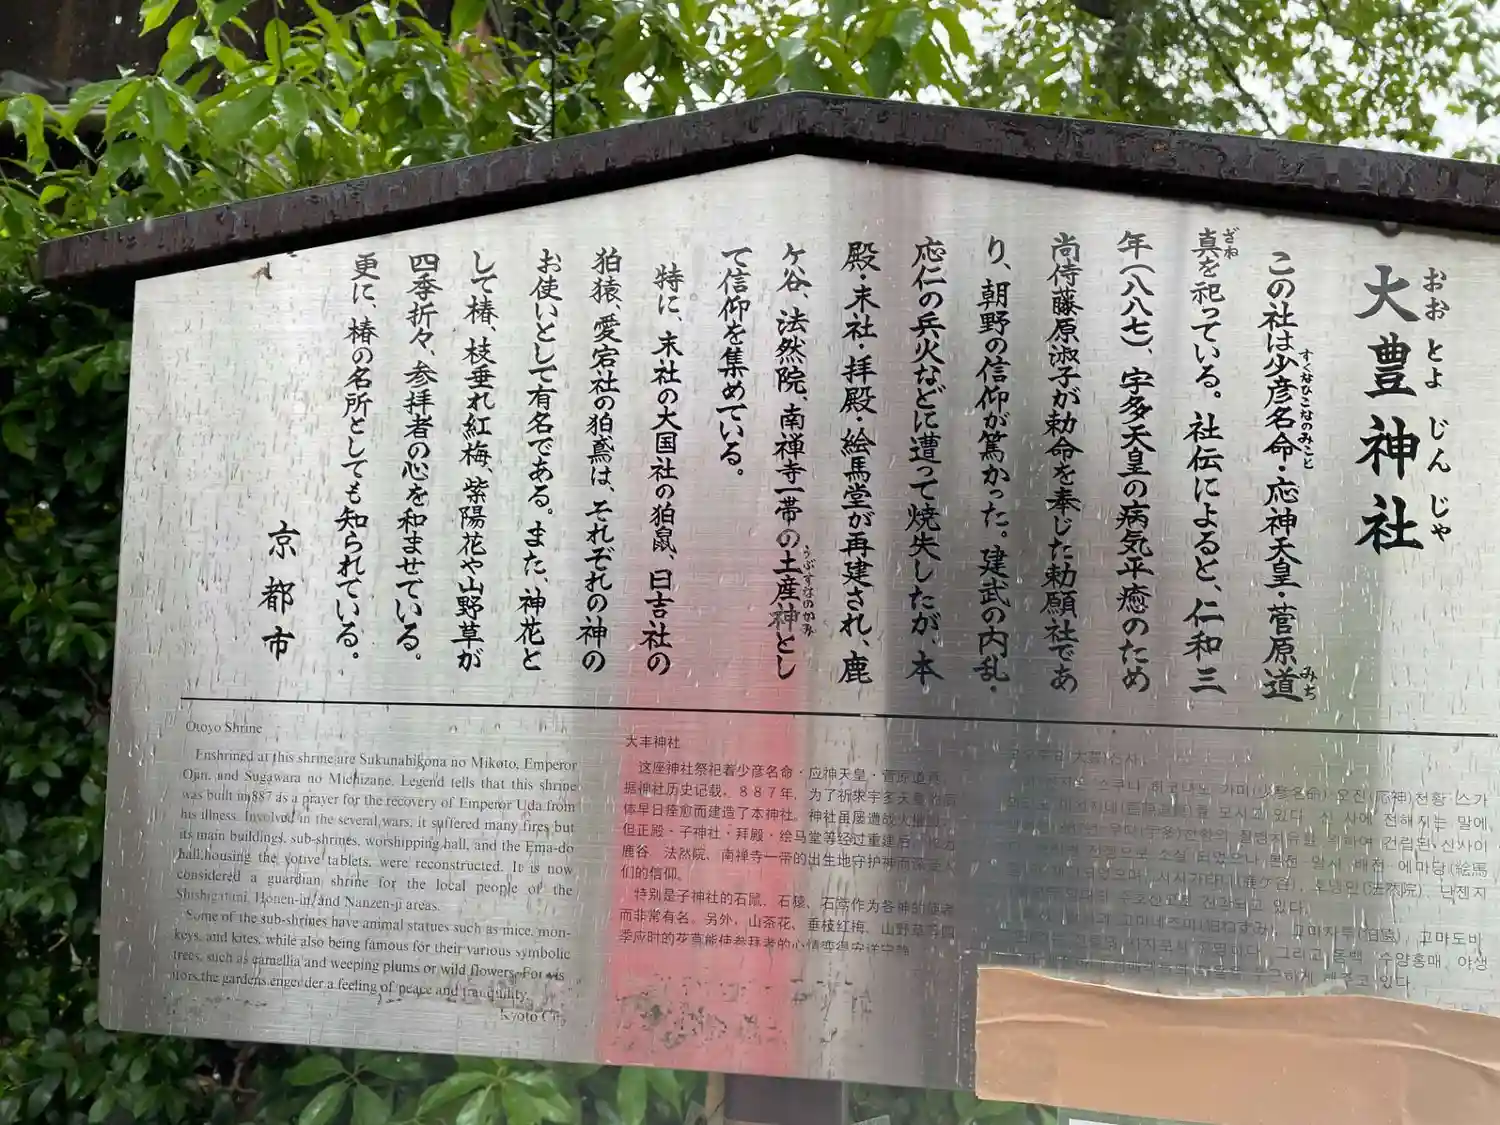 大豊神社
おおとよじんじゃ
この社は少彦名命・応神天皇・菅原道
すくなひこなのみこと
みち
真を祀っている。社伝によると、仁和三
ざね
年(八八七)、宇多天皇の病気平癒のため
尚侍藤原淑子が勅命を奉じた勅願社であ
り、朝野の信仰が篤かった。建武の内乱・
応仁の兵火などに遭って焼失したが、本
殿・末社・拝殿・絵馬堂が再建され、鹿
ケ谷、法然院、南禅寺一帯の土産神とし
うぶすなのかみ
て信仰を集めている。
特に、末社の大国社の狛鼠、日吉社の
狛猿、愛宕社の狛鳶は、それぞれの神の
お使いとして有名である。また、神花と
して椿、枝垂れ紅梅、紫陽花や山野草が
四季折々、参拝者の心を和ませている。
更に、椿の名所としても知られている。
京都市
Otoyo Shrine
Enshrined at this shrine are Sukunahikona no Mikoto, Emperor
Ojin, and Sugawara no Michizane. Legend tells that this shrine
was built in 887 as a prayer for the recovery of Emperor Uda from
his illness. Involved in the several wars, it suffered many fires but
its main buildings, sub-shrines, worshipping hall, and the Ema-do
hall housing the votive tablets, were reconstructed. It is now
considered a guardian shrine for the local people of the
Shishigatani, Honen-in, and Nanzen-ji areas.
Some of the sub-shrines have animal statues such as mice, mon-
keys, and kites, while also being famous for their various symbolic
trees, such as camellia and weeping plums or wild flowers. For vis
itors the gardens engender a feeling of peace and tranquility.
Kyoto City
大丰神社
这座神社祭祀着少彦名命・应神天皇・菅原道真。
据神社历史记载，８８７年，为了祈求宇多天皇
体早日痊愈而建造了本神社。神社虽屡遭战火
但正殿・子神社・拜殿・绘马堂等经过重建后，
鹿谷、法然院、南禅寺一带的出生地守护神而深受人
们的信仰。
特别是子神社的石鼠、石猿、石鸢作为各神的使者
而非常有名。另外，山茶花、垂枝红梅、山野草等四
季应时的花草能使参拜者的心情变得安详宁静
(大豊)신사
스쿠나 히코나노 가미(少彦名命) 오진(応神)천황 스가
를 모시고 있다 신 사에 전해지는 말에
우다(宇多)천황의 질병치유를 위하여 건립된 신사이
본전 말사 배전 에마당(絵馬
호넨인(法然院), 난젠지
수호신으로 전각되고 있다.
고마네즈미(狛ねずみ), 고마자루(狛猿), 고마도비
그리고 동백 수양홍매, 야생
해주고 있다.